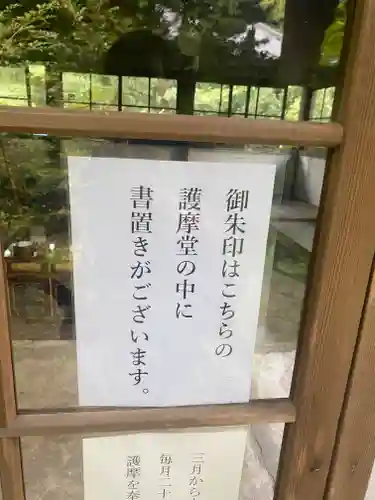 御朱印はこちらの
護摩堂の中に
書置きがございます。
三月から
毎月二十
護摩を奉